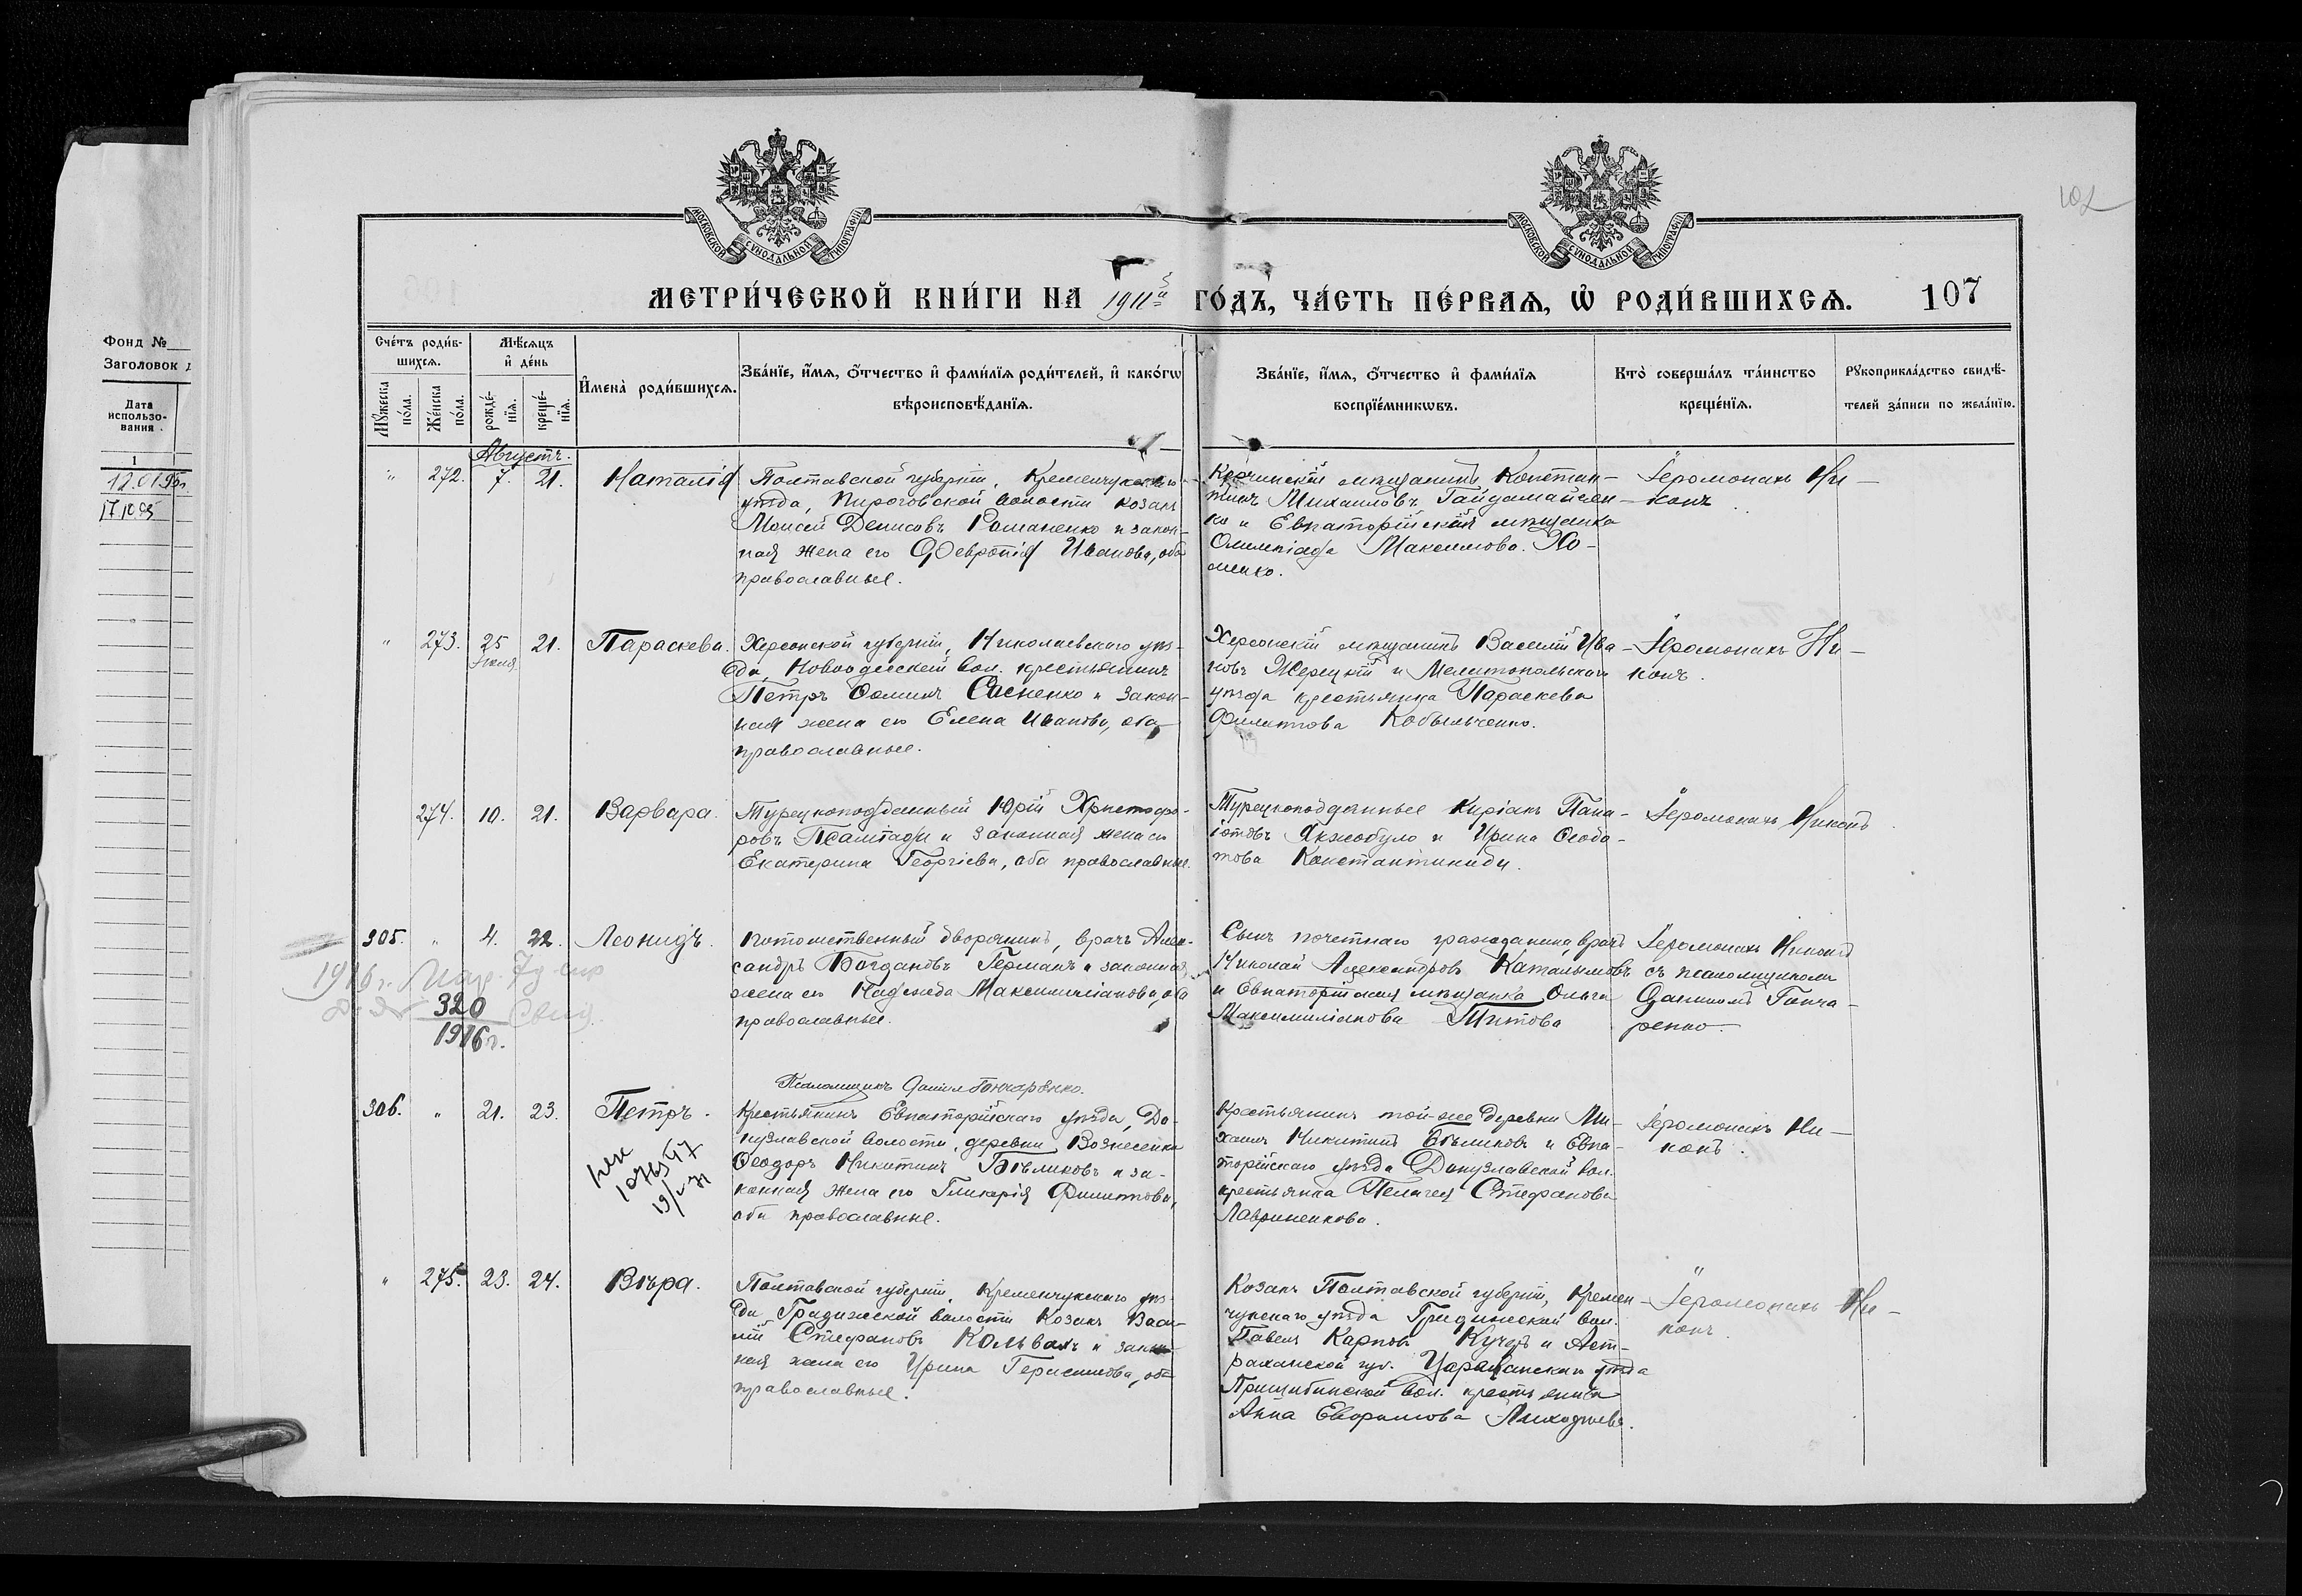 102
МОСКОВСКОЙ СѴНОДАЛЬНОЙ ТИПОГРАФІИ
МОСКОВСКОЙ СѴНОДАЛЬНОЙ ТИПОГРАФІИ
МЕТРИ́ЧЕСКОЙ КНИ́ГИ НА 1911й ГО́ДЪ, ЧА́СТЬ ПЕ́РВАЯ, Ѡ РОДИ́ВШИХСЯ. 107
Фонд №
Заголовок
Дата
использо-
вания
1
12.01.95г.
17.10.95
Сче́тъ роди́в-
шихся.
Мꙋ́жеска
по́ла.
Же́нска
по́ла.
Мѣ́сяцъ
и҆ де́нь
рожде́-
нїя.
креще́-
нїя.
И҆мена̀ роди́вшихся.
Зва́нїе, и҆́мя, ѻ҆́тчество и҆ фами́лїя роди́телей, и҆ како́гѡ
вѣроисповѣ́данїя.
Зва́нїе, и҆́мя, ѻ҆́тчество и҆ фами́лїя
воспрїе́мникѡвъ.
Кто̀ соверша́лъ та́инство
креще́нїя.
Рꙋкоприкла́дство свидѣ́-
телей за́писи по жела́нїю.
Августъ.
" 272. 7. 21. Наталія
Полтавской губерніи, Кременчугскаго
уѣзда, Пироговской волости козакъ
Моисей Денисовъ Романенко и закон-
ная жена его Февронія Иванова, оба
православные.
мѣщанинъ Констан-
тинъ Михаиловъ Гайдамайчен-
ко и Евпаторійская мѣщанка
Олимпіада Максимова Хо-
менко.
Іеромонахъ Ни-
конъ
" 273. 25 Іюля 21. Параскева.
Херсонской губерніи, Николаевскаго уѣз-
да, Новоодесской вол. крестьянинъ
Петръ Ѳоминъ и закон-
ная жена его Елена Иванова, оба
православные.
Херсонскій мѣщанинъ Василій Ива-
новъ Жерецкій и Мелитопольскаго
уѣзда крестьянка Параскева
Филиппова Кобыльченко.
Іеромонахъ Ни-
конъ.
274. 10. 21. Варвара.
Турецкоподданный Юрій Христофо-
ровъ и законная жена его
Екатерина Георгіева, оба православные.
Турецкоподданные Киріакъ Пана-
іотовъ и Ирина Ѳеодо-
това Константиниди.
Іеромонахъ Никонъ
305. " 4. 22. Леонидъ.
Потомственный дворянинъ, врачъ Алек-
сандръ Богдановъ Германъ и законная
жена его Надежда Максимиліанова, оба
православные.
Сынъ почетнаго гражданина, врачъ
Николай Александровъ Каталымовъ
и Евпаторійская мѣщанка Ольга
Максимиліанова Титова
Іеромонахъ Никонъ
съ псаломщикомъ
Даніиломъ Гонча-
ренко.
1916 г.
320
1916 г.
Псаломщикъ Даніилъ Гончаренко.
306. " 21. 23. Петръ.
Крестьянинъ Евпаторійскаго уѣзда, До-
нузлавской волости, деревни Вознесенка
Ѳеодоръ Никитинъ Бѣликовъ и за-
конная жена его Гликерія Филиппова,
оба православные.
Крестьянинъ той-же деревни Ми-
хаилъ Никитинъ Бѣликовъ и Евпа-
торійскаго уѣзда Донузлавской вол.
крестьянка Пелагея Стефанова
Лавриненкова.
Іеромонахъ Ни-
конъ.
" 275. 23. 24. Вѣра.
Полтавской губерніи, Кременчугскаго уѣз-
да, Градижской волости козакъ Васи-
лій Стефановъ Кольвахъ и закон-
ная жена его Ирина Герасимова, оба
православные.
Козакъ Полтавской губерніи, Кремен-
чугскаго уѣзда Градижской вол.
Павелъ Карповъ и Аст-
раханской губ. Царевскаго уѣзда
Пришибинской вол. крестьянка
Анна Евфимова
Іеромонахъ Ни-
конъ.